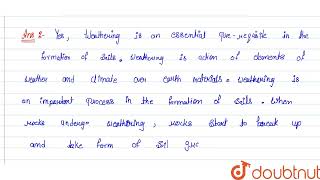 Ans 2- Yes, Weathering is an essential pre-requisite in the
formation of soils. weathering is action of elements of
weather and climate over earth materials. weathering is
an important process in the formation of soils. When
rocks undergo weathering, rocks start to break up
and take form of soil
doubtnut